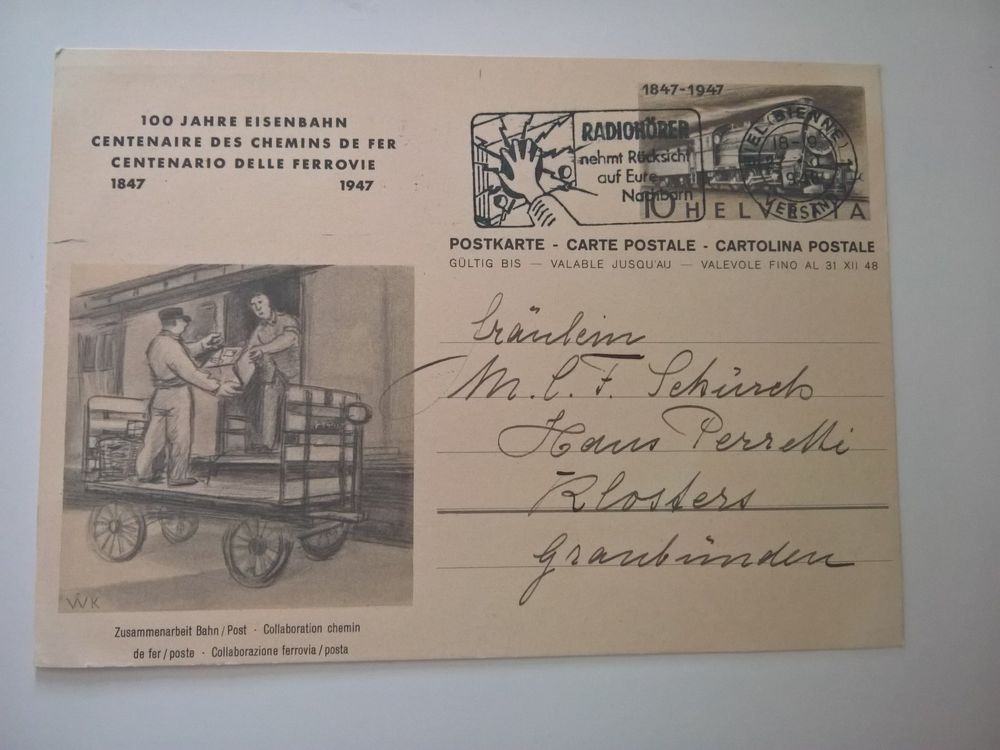 100 JAHRE EISENBAHN
CENTENAIRE DES CHEMINS DE FER
CENTENARIO DELLE FERROVIE
1847 1947
1847-1947
RADIOHÖRER
nehmt Rücksicht
auf Eure
Nachbarn
BIEL (BIENNE)
18-
VERSAND
10 HELVETIA
POSTKARTE - CARTE POSTALE - CARTOLINA POSTALE
GÜLTIG BIS — VALABLE JUSQU'AU — VALEVOLE FINO AL 31 XII 48
Fräulein
M. C. F. Schürch
Haus Perretti
Klosters
Graubünden
WK
Zusammenarbeit Bahn / Post · Collaboration chemin
de fer / poste · Collaborazione ferrovia / posta